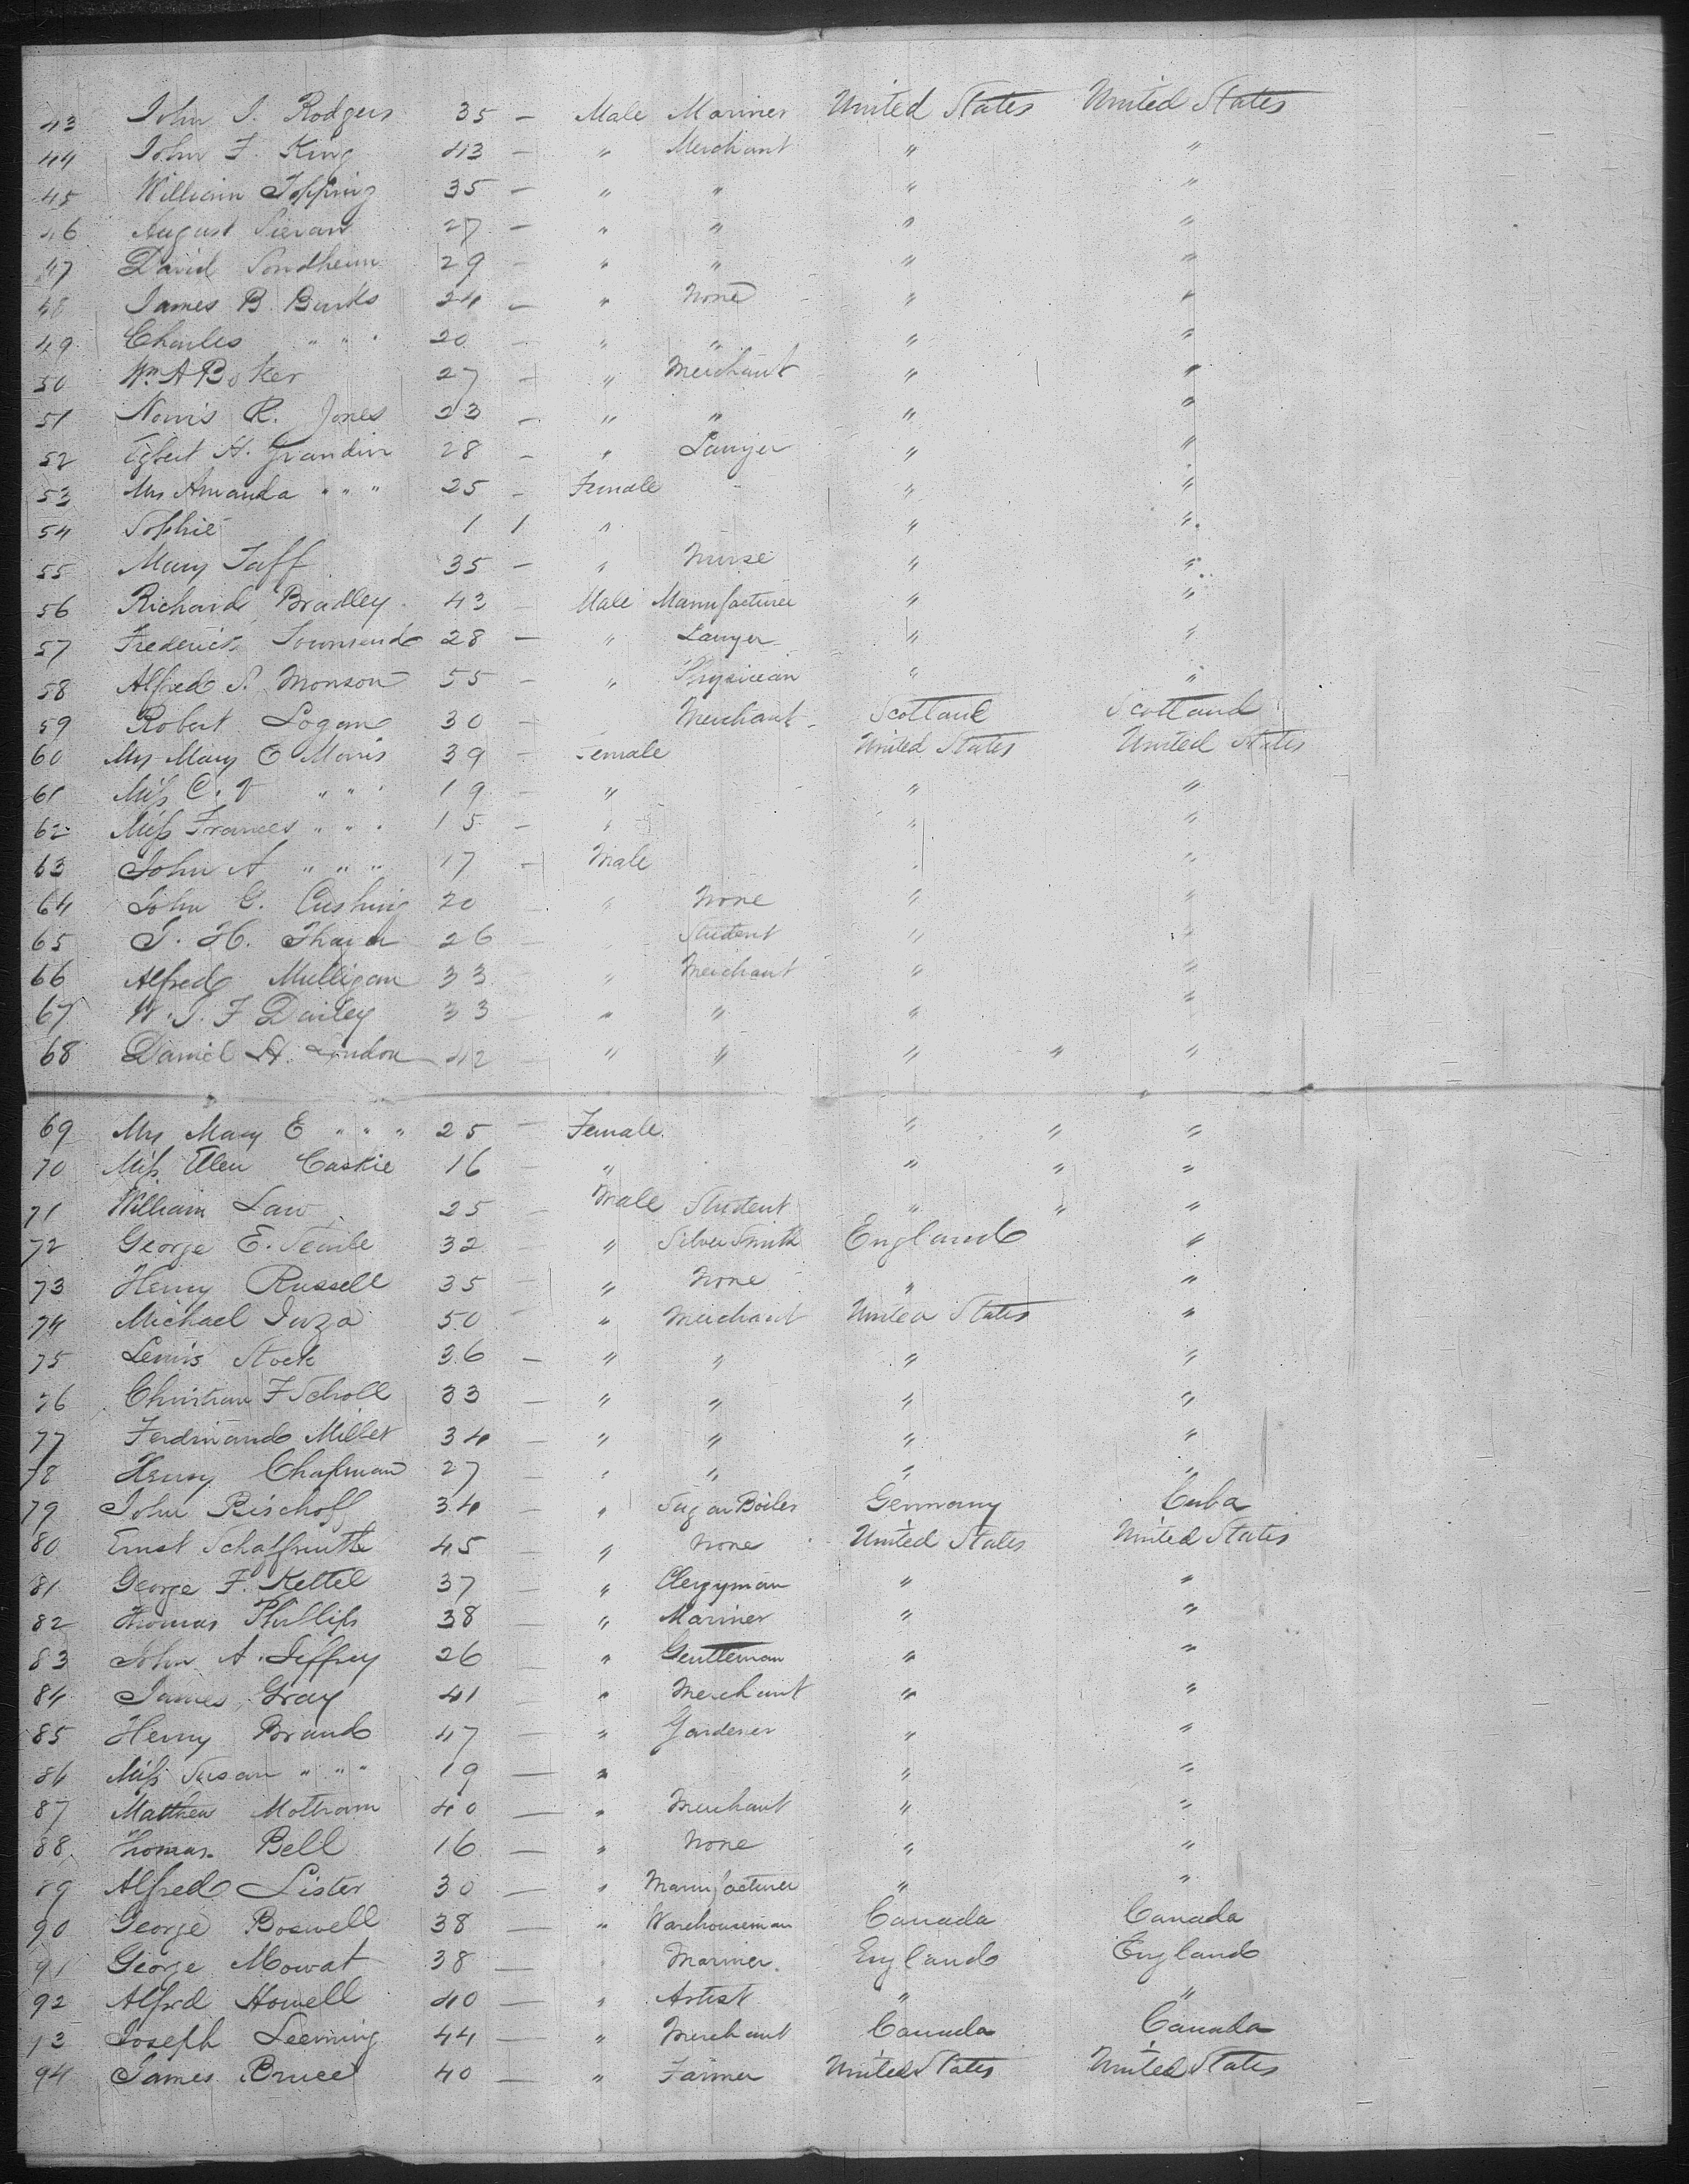 43 John J. Rodgers 35 — Male Mariner United States United States
44 John F. King 43 — " Merchant " "
45 William Topping 35 — " " " "
46 August 27 — " " " "
47 David Sondheim 29 — " " " "
48 James B. Banks 24 — " None " "
49 Charles " " " 20 — " " " "
50 Wm A Boker 27 — " Merchant " "
51 Norris R. Jones 23 — " " " "
52 Egbert H. Grandin 28 — " Lawyer " "
53 Mrs Amanda " " " 25 — Female " "
54 Sophie 1 1 " " "
55 Mary Taff 35 — " Nurse " "
56 Richard Bradley 43 — Male Manufacturer " "
57 Frederick Townsend 28 — " Lawyer " "
58 Alfred S. Monson 55 — " Physician " "
59 Robert Logan 30 — Merchant Scotland Scotland
60 Mrs Mary E Morris 39 — Female United States United States
61 Miss C. V " " " 19 — " " "
62 Miss Frances " " " 15 — " " "
63 John A " " " 17 — Male " "
64 John G. Cushing 20 — " None " "
65 J. H. Thayer 26 — " Student " "
66 Alfred Mulligan 33 — " Merchant " "
67 W. J. F Dailey 33 — " " " "
68 Daniel H. London 42 — " " " " "
69 Mrs Mary E " " " 25 — Female " " "
70 Miss Ellen Caskie 16 — " " " "
71 William Law 25 — Male Student " " "
72 George E. Searle 32 — " Silver Smith England "
73 Henry Russell 35 — " None " "
74 Michael 50 — " Merchant United States "
75 Lewis Stock 36 — " " " "
76 Christian F Scholl 33 — " " " "
77 Ferdinand Millet 34 — " " " "
78 Henry Chapman 27 — " " " "
79 John Bischoff 34 — " Sugar Boiler Germany Cuba
80 Ernst 45 — " None United States United States
81 George F. Kettel 37 — " Clergyman " "
82 Thomas Phillips 38 — " Mariner " "
83 John A. Jeffrey 26 — " Gentleman " "
84 James Gray 41 — " Merchant " "
85 Henry Brand 47 — " Gardener " "
86 Miss Susan " " " 19 — " " "
87 Matthew Mottram 40 — " Merchant " "
88 Thomas Bell 16 — " None " "
89 Alfred Lister 30 — " Manufacturer " "
90 George Boswell 38 — " Warehouseman Canada Canada
91 George Mowat 38 — " Mariner England England
92 Alfred Howell 40 — " Artist " "
93 Joseph Leeming 44 — " Merchant Canada Canada
94 James Bruce 40 — " Farmer United States United States